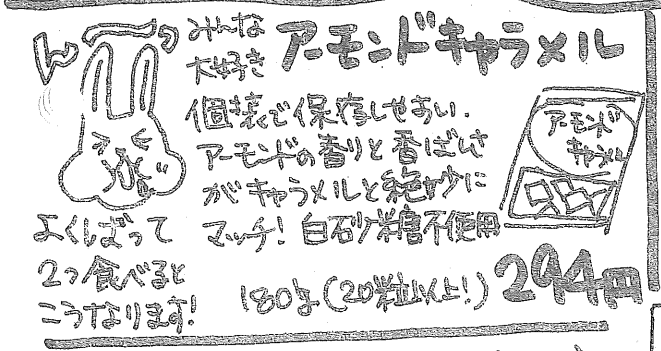 ん〜っ
みんな
大好き
アーモンドキャラメル
個装で保存しせあい.
アーモンドの香りと香ばしさ
がキャラメルと絶妙に
マッチ! 白砂糖不使用
アーモンド
キャラメル
よくばって
2つ食べると
こうなります!
180g(20粒以上!)
294円